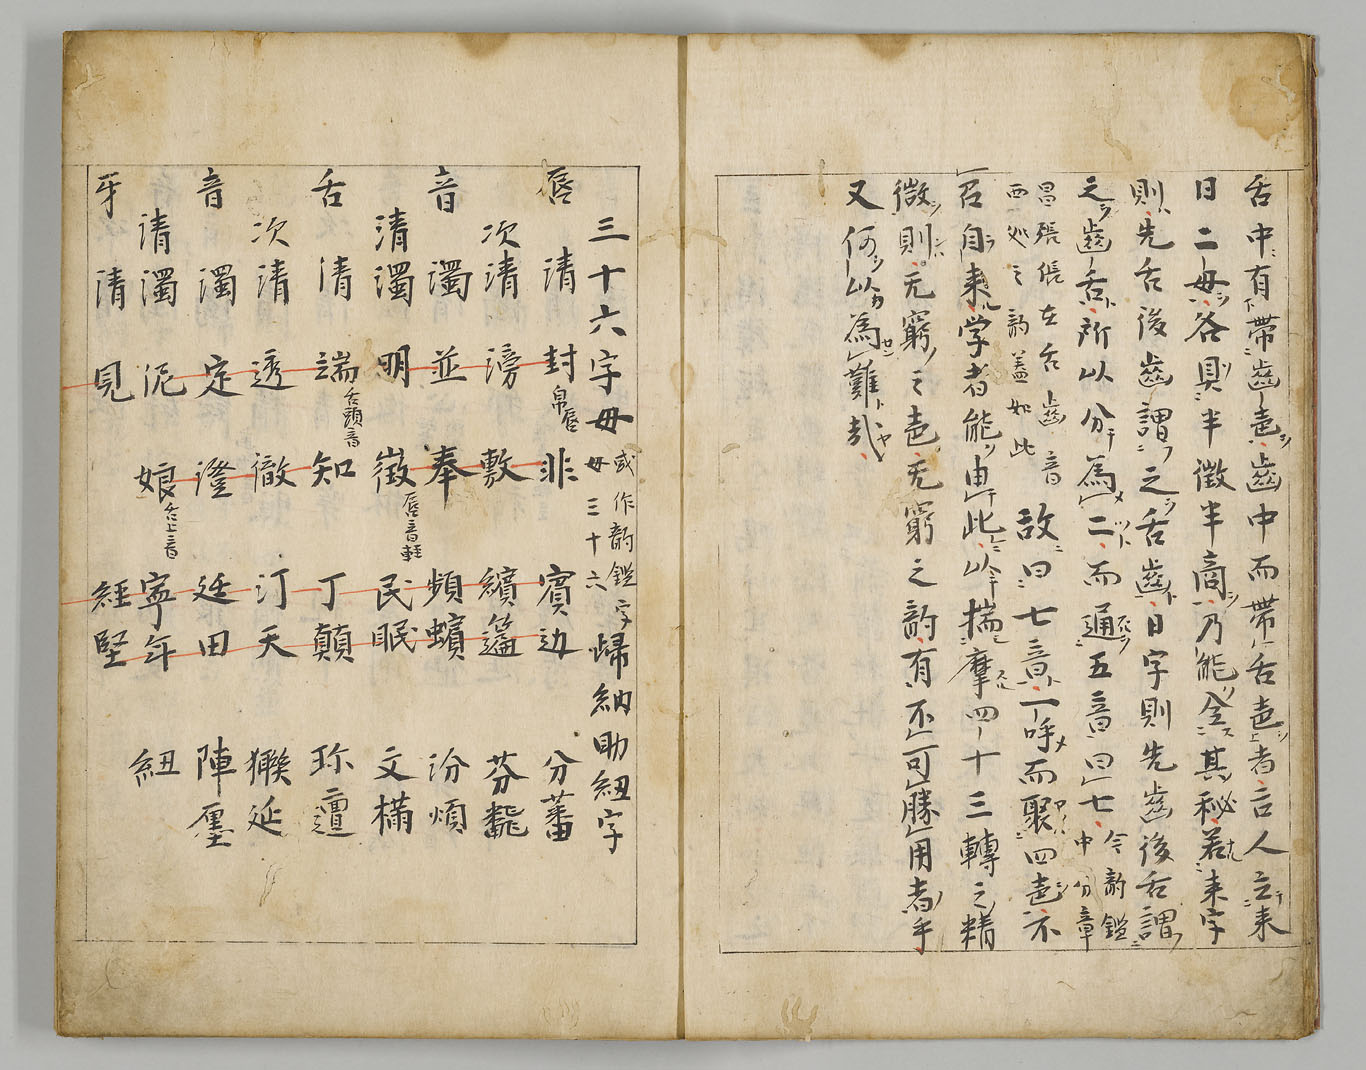 舌中有帶齒声齒中而帶舌声者古人立来
日二母各具半徴半商乃能全其秘若来字
則先舌後齒謂之舌齒日字則先齒後舌謂
之齒舌所以分為二而通五音曰七今韵鑑中分章
昌張倀在舌齒音兩処之韵盖如此故曰七音一呼而聚四声不
召自来学者能由此以揣摩四十三轉之精
微則无窮之声无窮之韵有不可勝用者乎
又何以為難哉
三十六字母或作韵鑑字母三十六歸納助紐字
唇清封帛唇非賓边分蕃
次清滂敷繽篇芬飜
音濁並奉頻蠙汾煩
清濁明微唇音軽民眠文樠
舌清端舌頭音知丁顛珍邅
次清透徹汀天延
音濁定澄廷田陳廛
清濁泥娘舌上音寧年紐
牙清見経堅